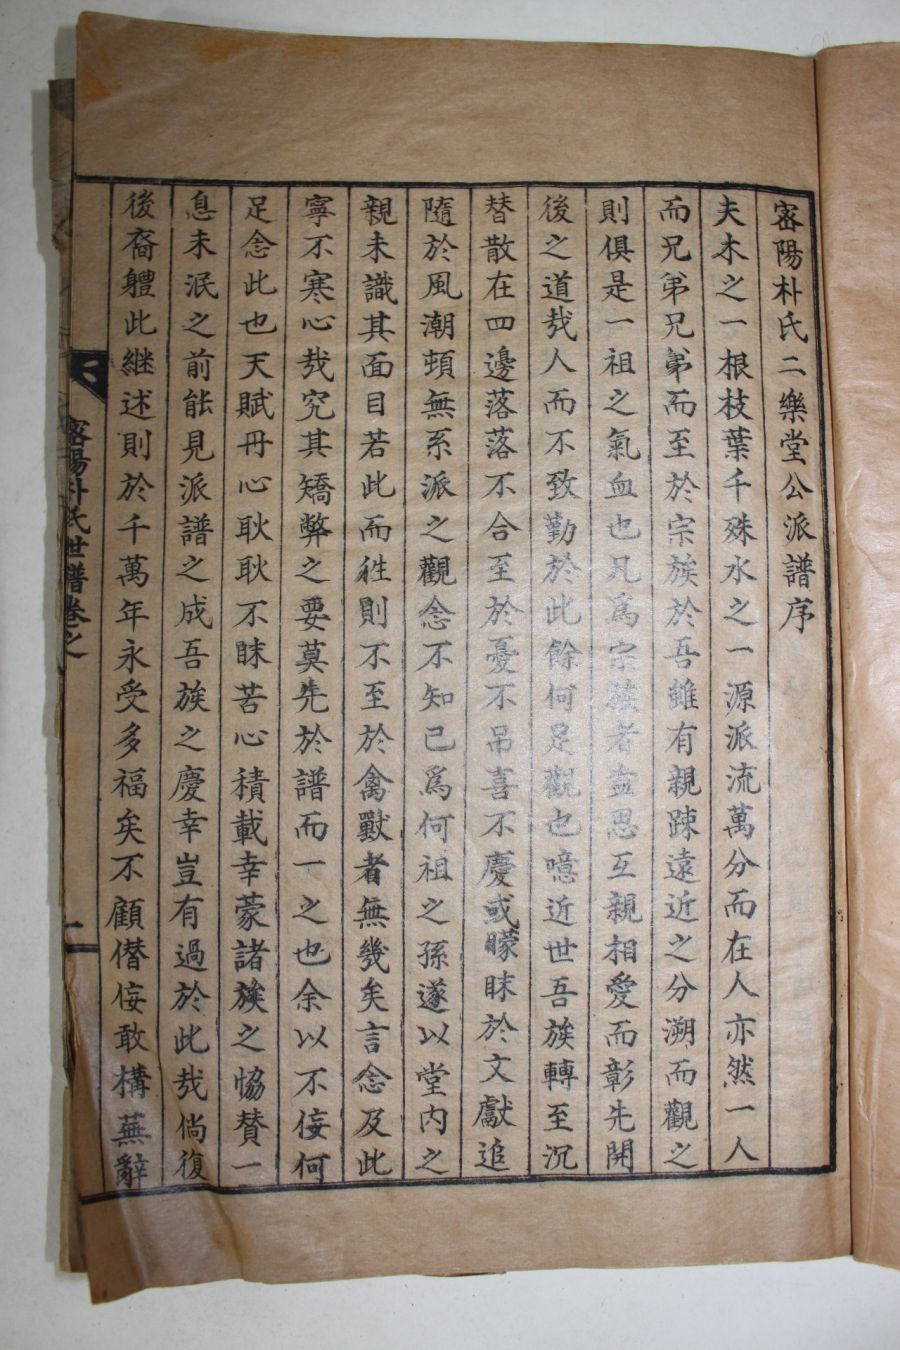 密陽朴氏二樂堂公派譜序
夫木之一根枝葉千殊水之一源派流萬分而在人亦然一人
而兄弟兄弟而至於宗族於吾雖有親踈遠近之分溯而觀之
則俱是一祖之氣血也凡爲宗族者盍思互親相愛而彰先開
後之道哉人而不致勤於此餘何足觀也噫近世吾族轉至沉
替散在四邊落落不合至於憂不吊喜不慶或矇眛於文獻追
隨於風潮頓無系派之觀念不知己爲何祖之孫遂以堂內之
親未識其面目若此而徃則不至於禽獸者無幾矣言念及此
寧不寒心哉究其矯弊之要莫先於譜而一之也余以不侫何
足念此也天賦丹心耿耿不眛苦心積載幸蒙諸族之恊賛一
息未泯之前能見派譜之成吾族之慶幸豈有過於此哉倘復
後裔軆此継述則於千萬年永受多福矣不顧僣侫敢構蕪辭
密陽朴氏世譜卷之
一